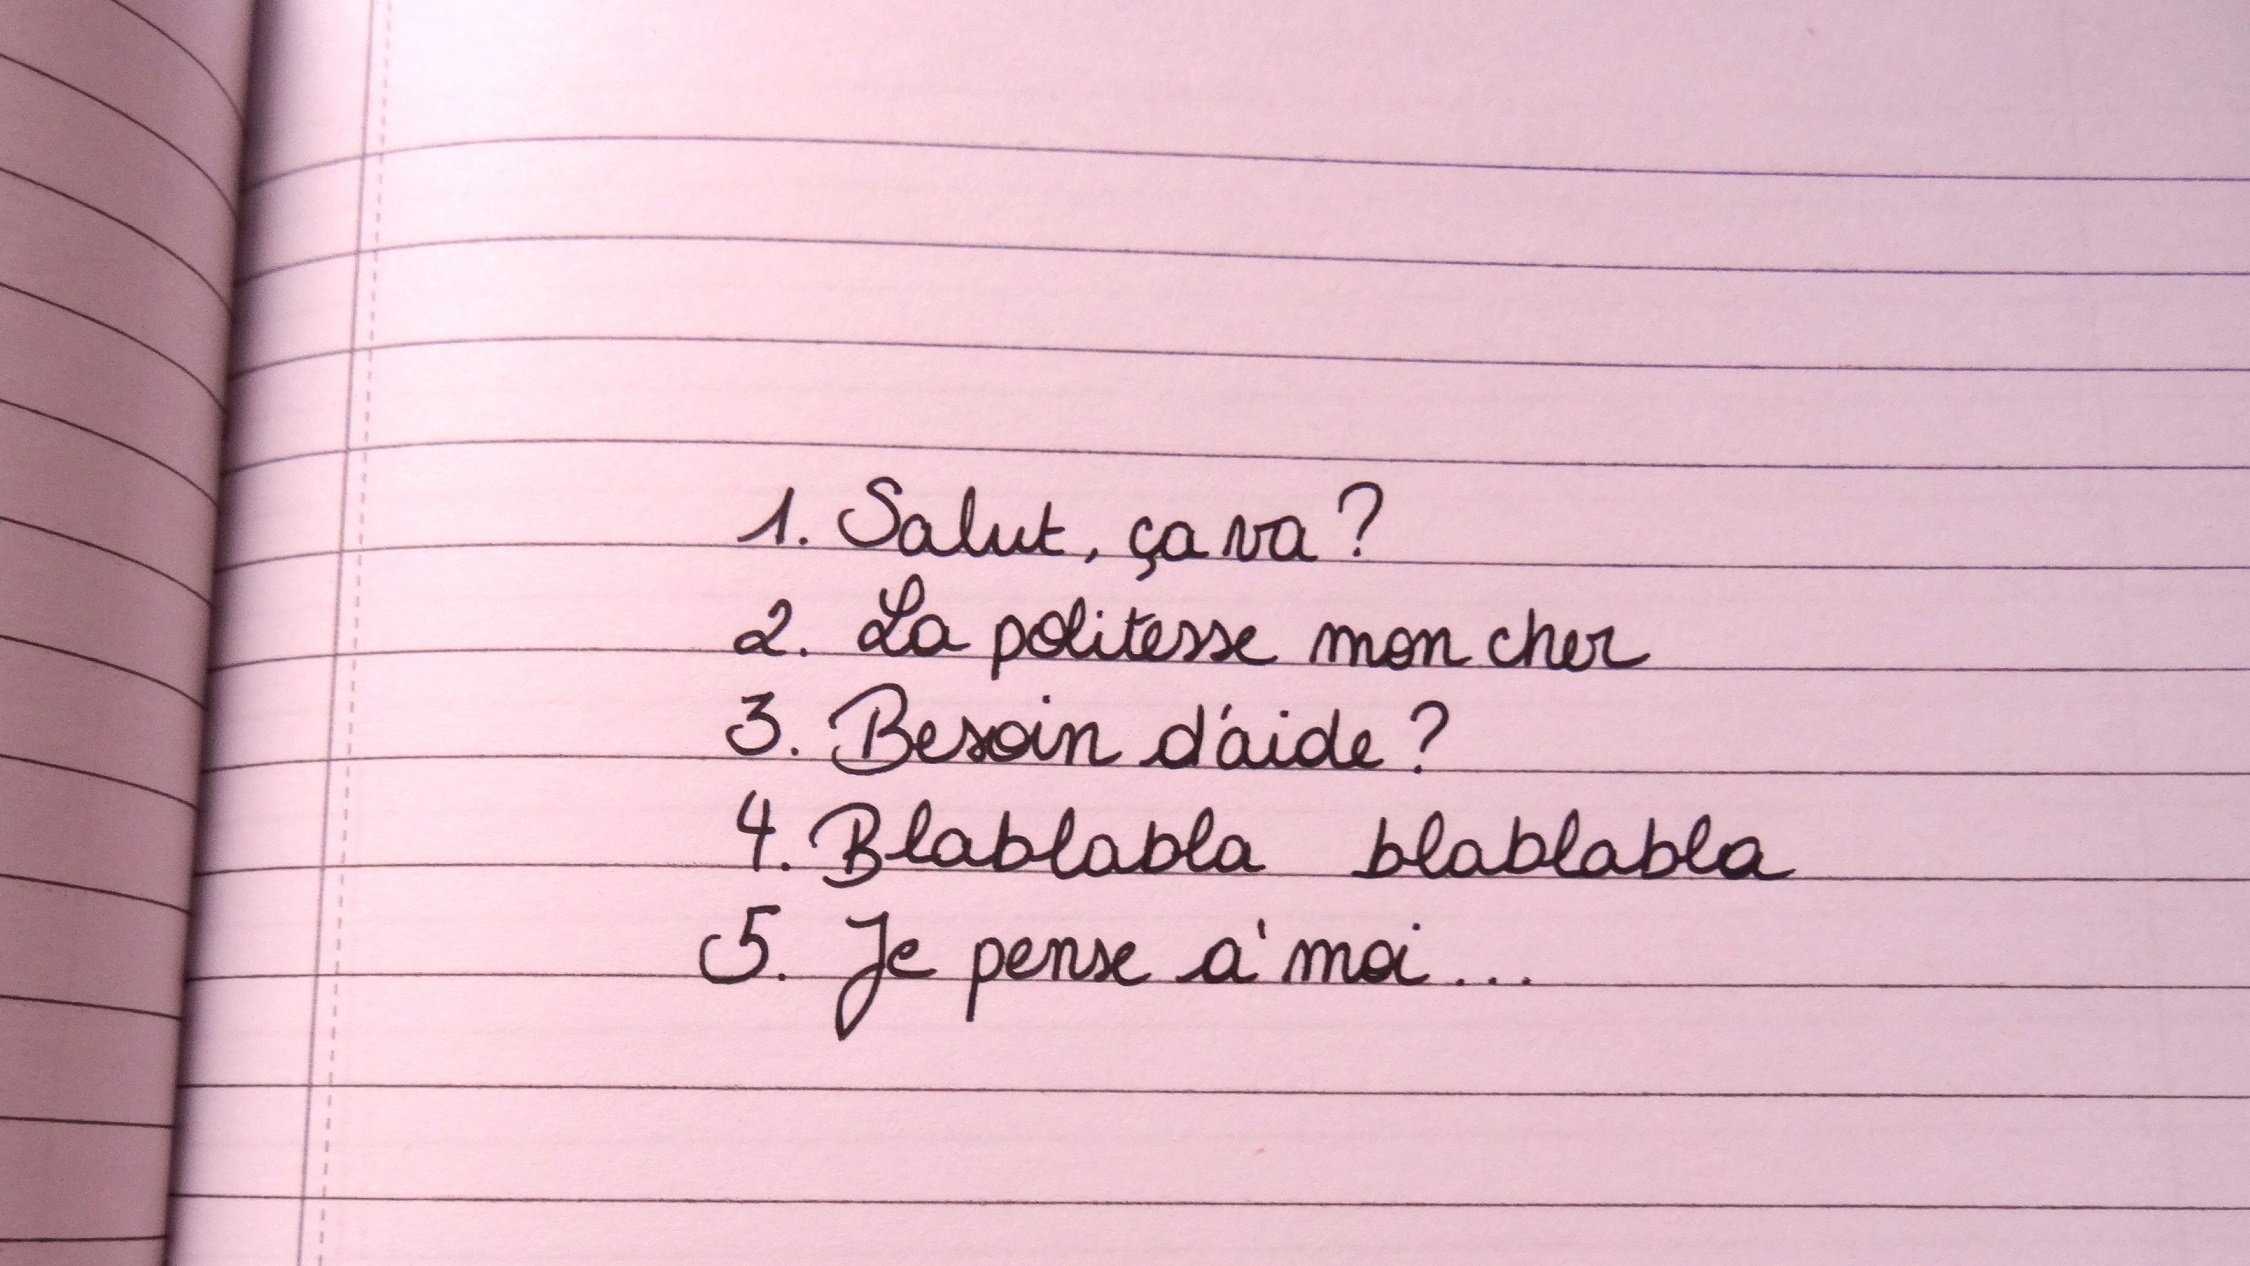 1. Salut, ça va ?
2. La politesse mon cher
3. Besoin d'aide ?
4. Blablabla blablabla
5. Je pense à moi...